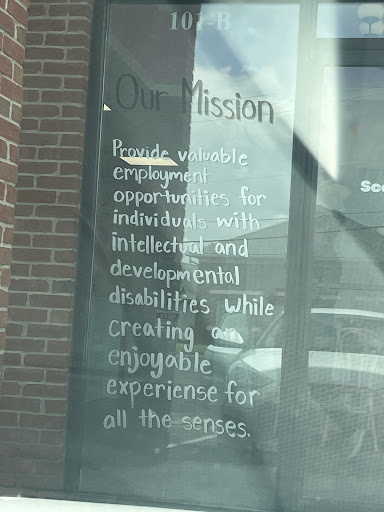 101-B
Our Mission
Provide valuable
employment
opportunities for
individuals with
intellectual and
developmental
disabilities while
creating an
enjoyable
experiense for
all the senses.